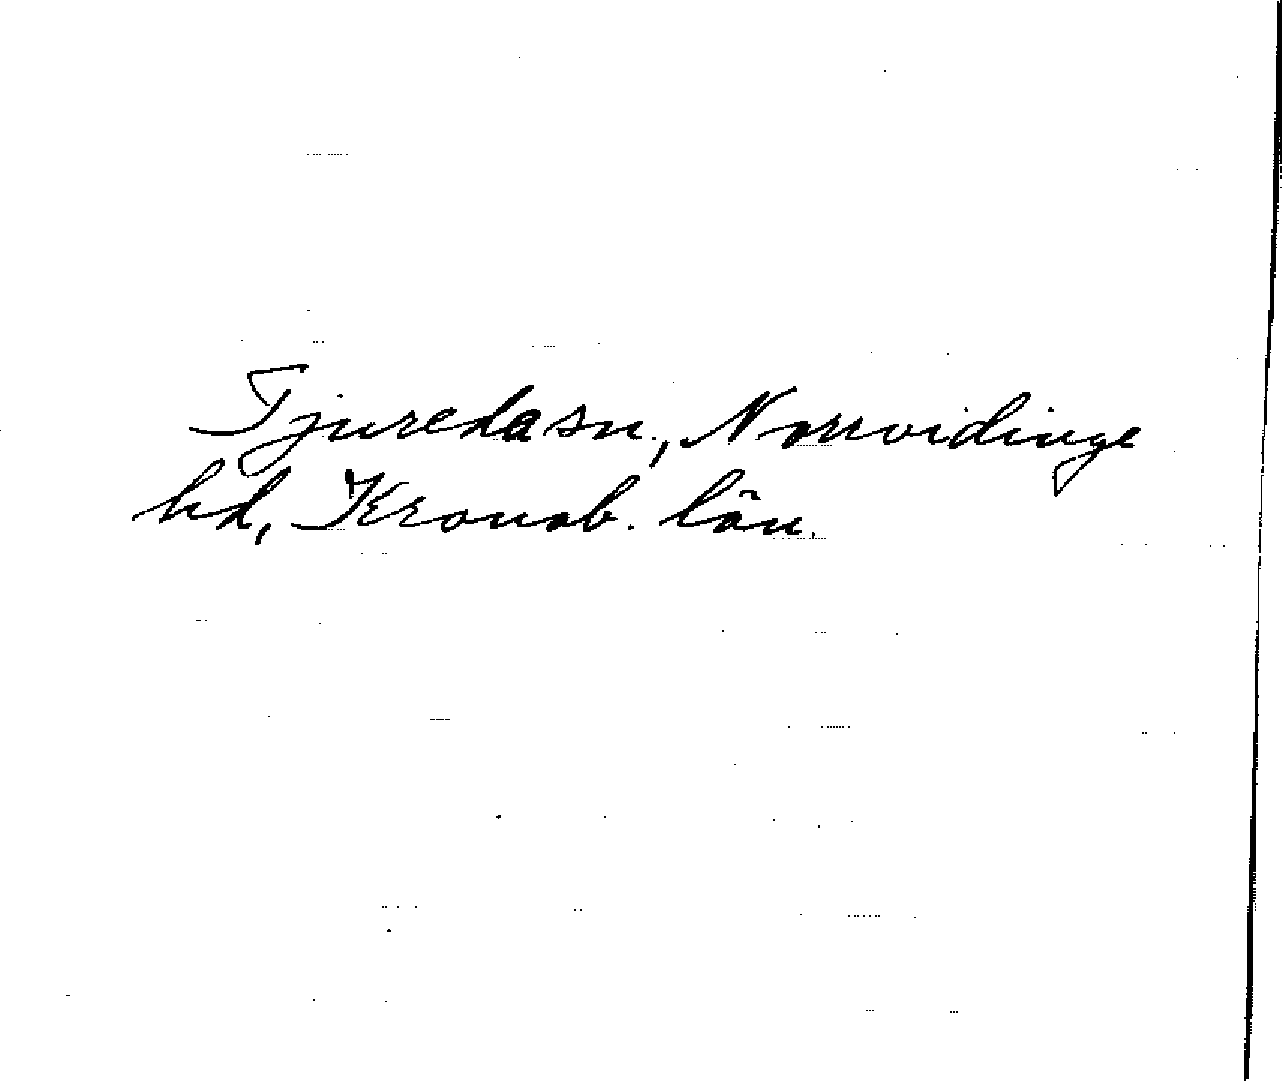 Tjureda sn., Norrvidinge
hd, Kronob. län.